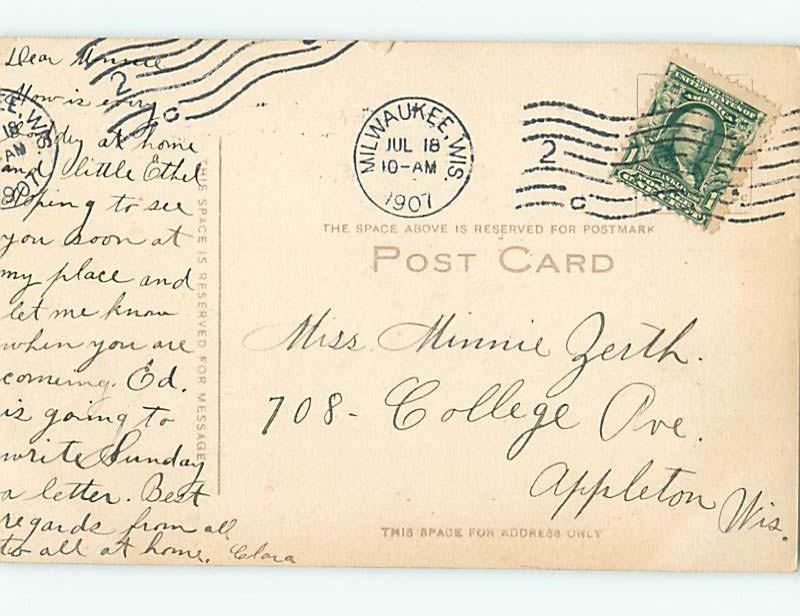 Dear Minnie
How is every
body at home
and little Ethel
Hoping to see
you soon at
my place and
let me know
when you are
comeing. Ed.
is going to
write Sunday
a letter. Best
regards from all
to all at home. Clara
THIS SPACE IS RESERVED FOR MESSAGE
MILWAUKEE, WIS.
JUL 18
10-AM
1907
2
C
2
C
EE, WIS
18
AM
1907
UNITED STATES OF
AMERICA
THE SPACE ABOVE IS RESERVED FOR POSTMARK
POST CARD
Miss Minnie Zerth.
708- College Ave.
Appleton Wis.
THIS SPACE FOR ADDRESS ONLY